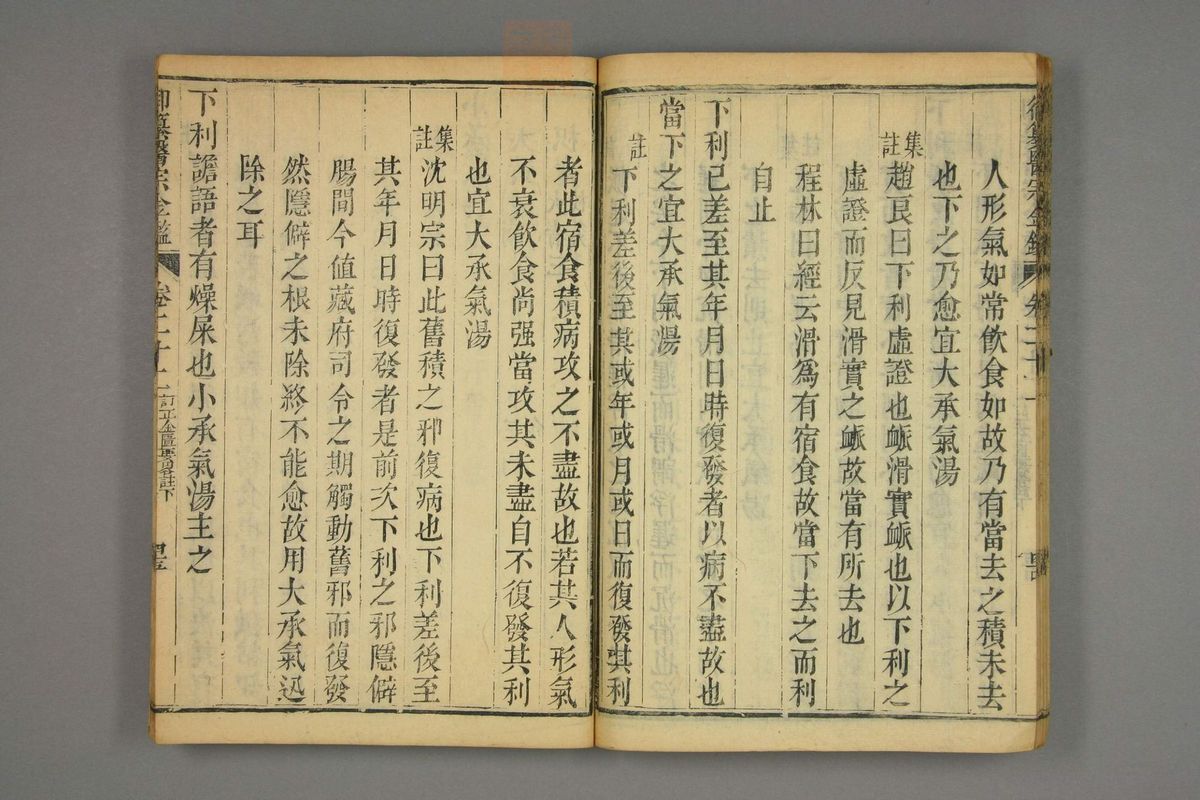 御纂醫宗金鑑 卷二十一
人形氣如常飲食如故乃有當去之積未去
也下之乃愈宜大承氣湯
集註趙良曰下利虛證也脈滑實脈也以下利之
虛證而反見滑實之脈故當有所去也
程林曰經云滑爲有宿食故當下去之而利
自止
下利已差至其年月日時復發者以病不盡故也
當下之宜大承氣湯
註下利差後至其或年或月或日而復發其利
者此宿食積病攻之不盡故也若其人形氣
不衰飲食尚强當攻其未盡自不復發其利
也宜大承氣湯
集註沈明宗曰此舊積之邪復病也下利差後至
其年月日時復發者是前次下利之邪隱僻
腸間今值藏府司令之期觸動舊邪而復發
然隱僻之根未除終不能愈故用大承氣迅
除之耳
下利譫語者有燥屎也小承氣湯主之
御纂醫宗金鑑 卷二十一 訂正金匱要略註下